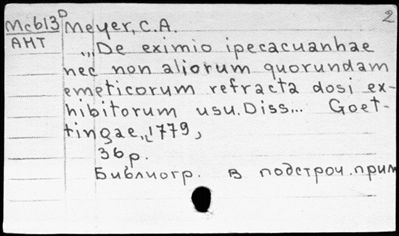 Mc613D Meyer, C.A. 2
АНТ „De eximio ipecacuanhae
nec non aliorum quorundam
emeticorum refracta dosi ex-
hibitorum usu. Diss... Goet-
tingae„ 1779,
36p.
Библиогр. в подстроч. прим